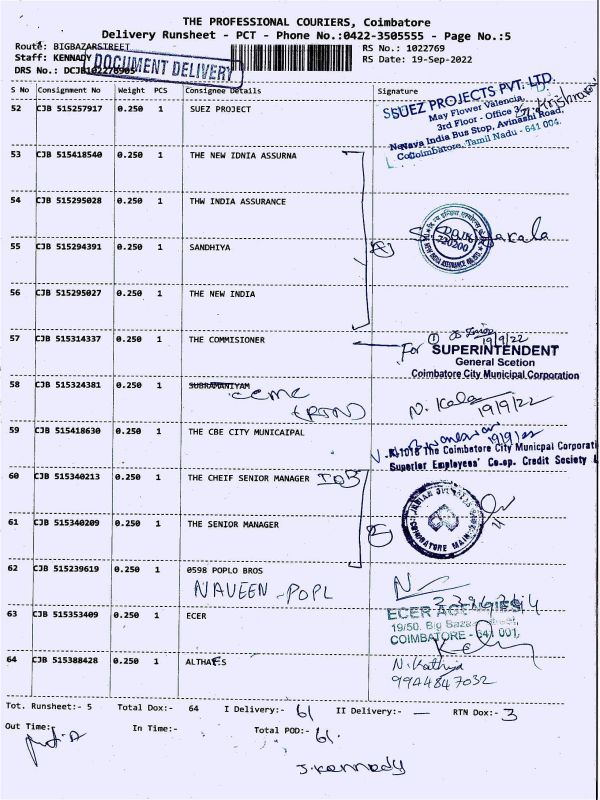 THE PROFESSIONAL COURIERS, Coimbatore
Delivery Runsheet - PCT - Phone No.:0422-3505555 - Page No.:5
Route: BIGBAZARSTREET RS No.: 1022769
Staff: KENNADY RS Date: 19-Sep-2022
DRS No.: DCJB102276905
DOCUMENT DELIVERY
S No Consignment No Weight PCS Consignee Details Signature
52 CJB 515257917 0.250 1 SUEZ PROJECT
SUEZ PROJECTS PVT. LTD.
May Flower Valencia,
3rd Floor - Office
Nava India Bus Stop, Avinashi Road,
Coimbatore, Tamil Nadu - 641 004.
53 CJB 515418540 0.250 1 THE NEW IDNIA ASSURNA
54 CJB 515295028 0.250 1 THW INDIA ASSURANCE
55 CJB 515294391 0.250 1 SANDHIYA
720200
56 CJB 515295027 0.250 1 THE NEW INDIA
57 CJB 515314337 0.250 1 THE COMMISIONER
19/9/22
For SUPERINTENDENT
General Scetion
Coimbatore City Municipal Corporation
58 CJB 515324381 0.250 1 SUBRAMANIYAM
CCMC
(RTN)
N. Kala
19/9/22
59 CJB 515418630 0.250 1 THE CBE CITY MUNICAIPAL
19/9/22
The Coimbatore City Municpal Corporati
Superior Employees' Co-op. Credit Society L
60 CJB 515340213 0.250 1 THE CHEIF SENIOR MANAGER IOB
COIMBATORE MAIN
61 CJB 515340209 0.250 1 THE SENIOR MANAGER
62 CJB 515239619 0.250 1 0598 POPLO BROS
NAVEEN - POPL
63 CJB 515353409 0.250 1 ECER
ECER AGENCIES
19/50, Big Bazaar Street,
COIMBATORE - 641 001,
64 CJB 515388428 0.250 1 ALTHAFS
N. Kathija
9944847032
Tot. Runsheet:- 5 Total Dox:- 64 I Delivery:- 61 II Delivery:- — RTN Dox:- 3
Out Time:- In Time:- Total POD:- 61
J. Kennady